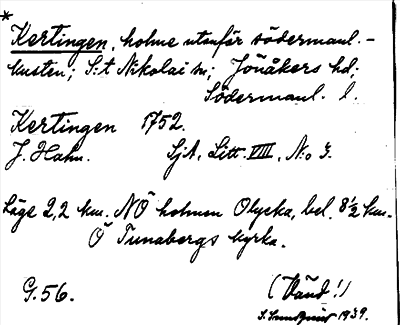 *
Kertingen, holme utanför södermanl. -
kusten; S:t Nikolai sn; Jönåkers hd;
Södermanl. l.
Kertingen 1752.
J. Hahn. SjA, Litt. VIII, N:o 3.
Läge 2,2 km. NÖ holmen Olycka, bel. 8½ km.
Ö Tunabergs kyrka.
G. 56. (Vänd!)
S. Sundqvist 1939.